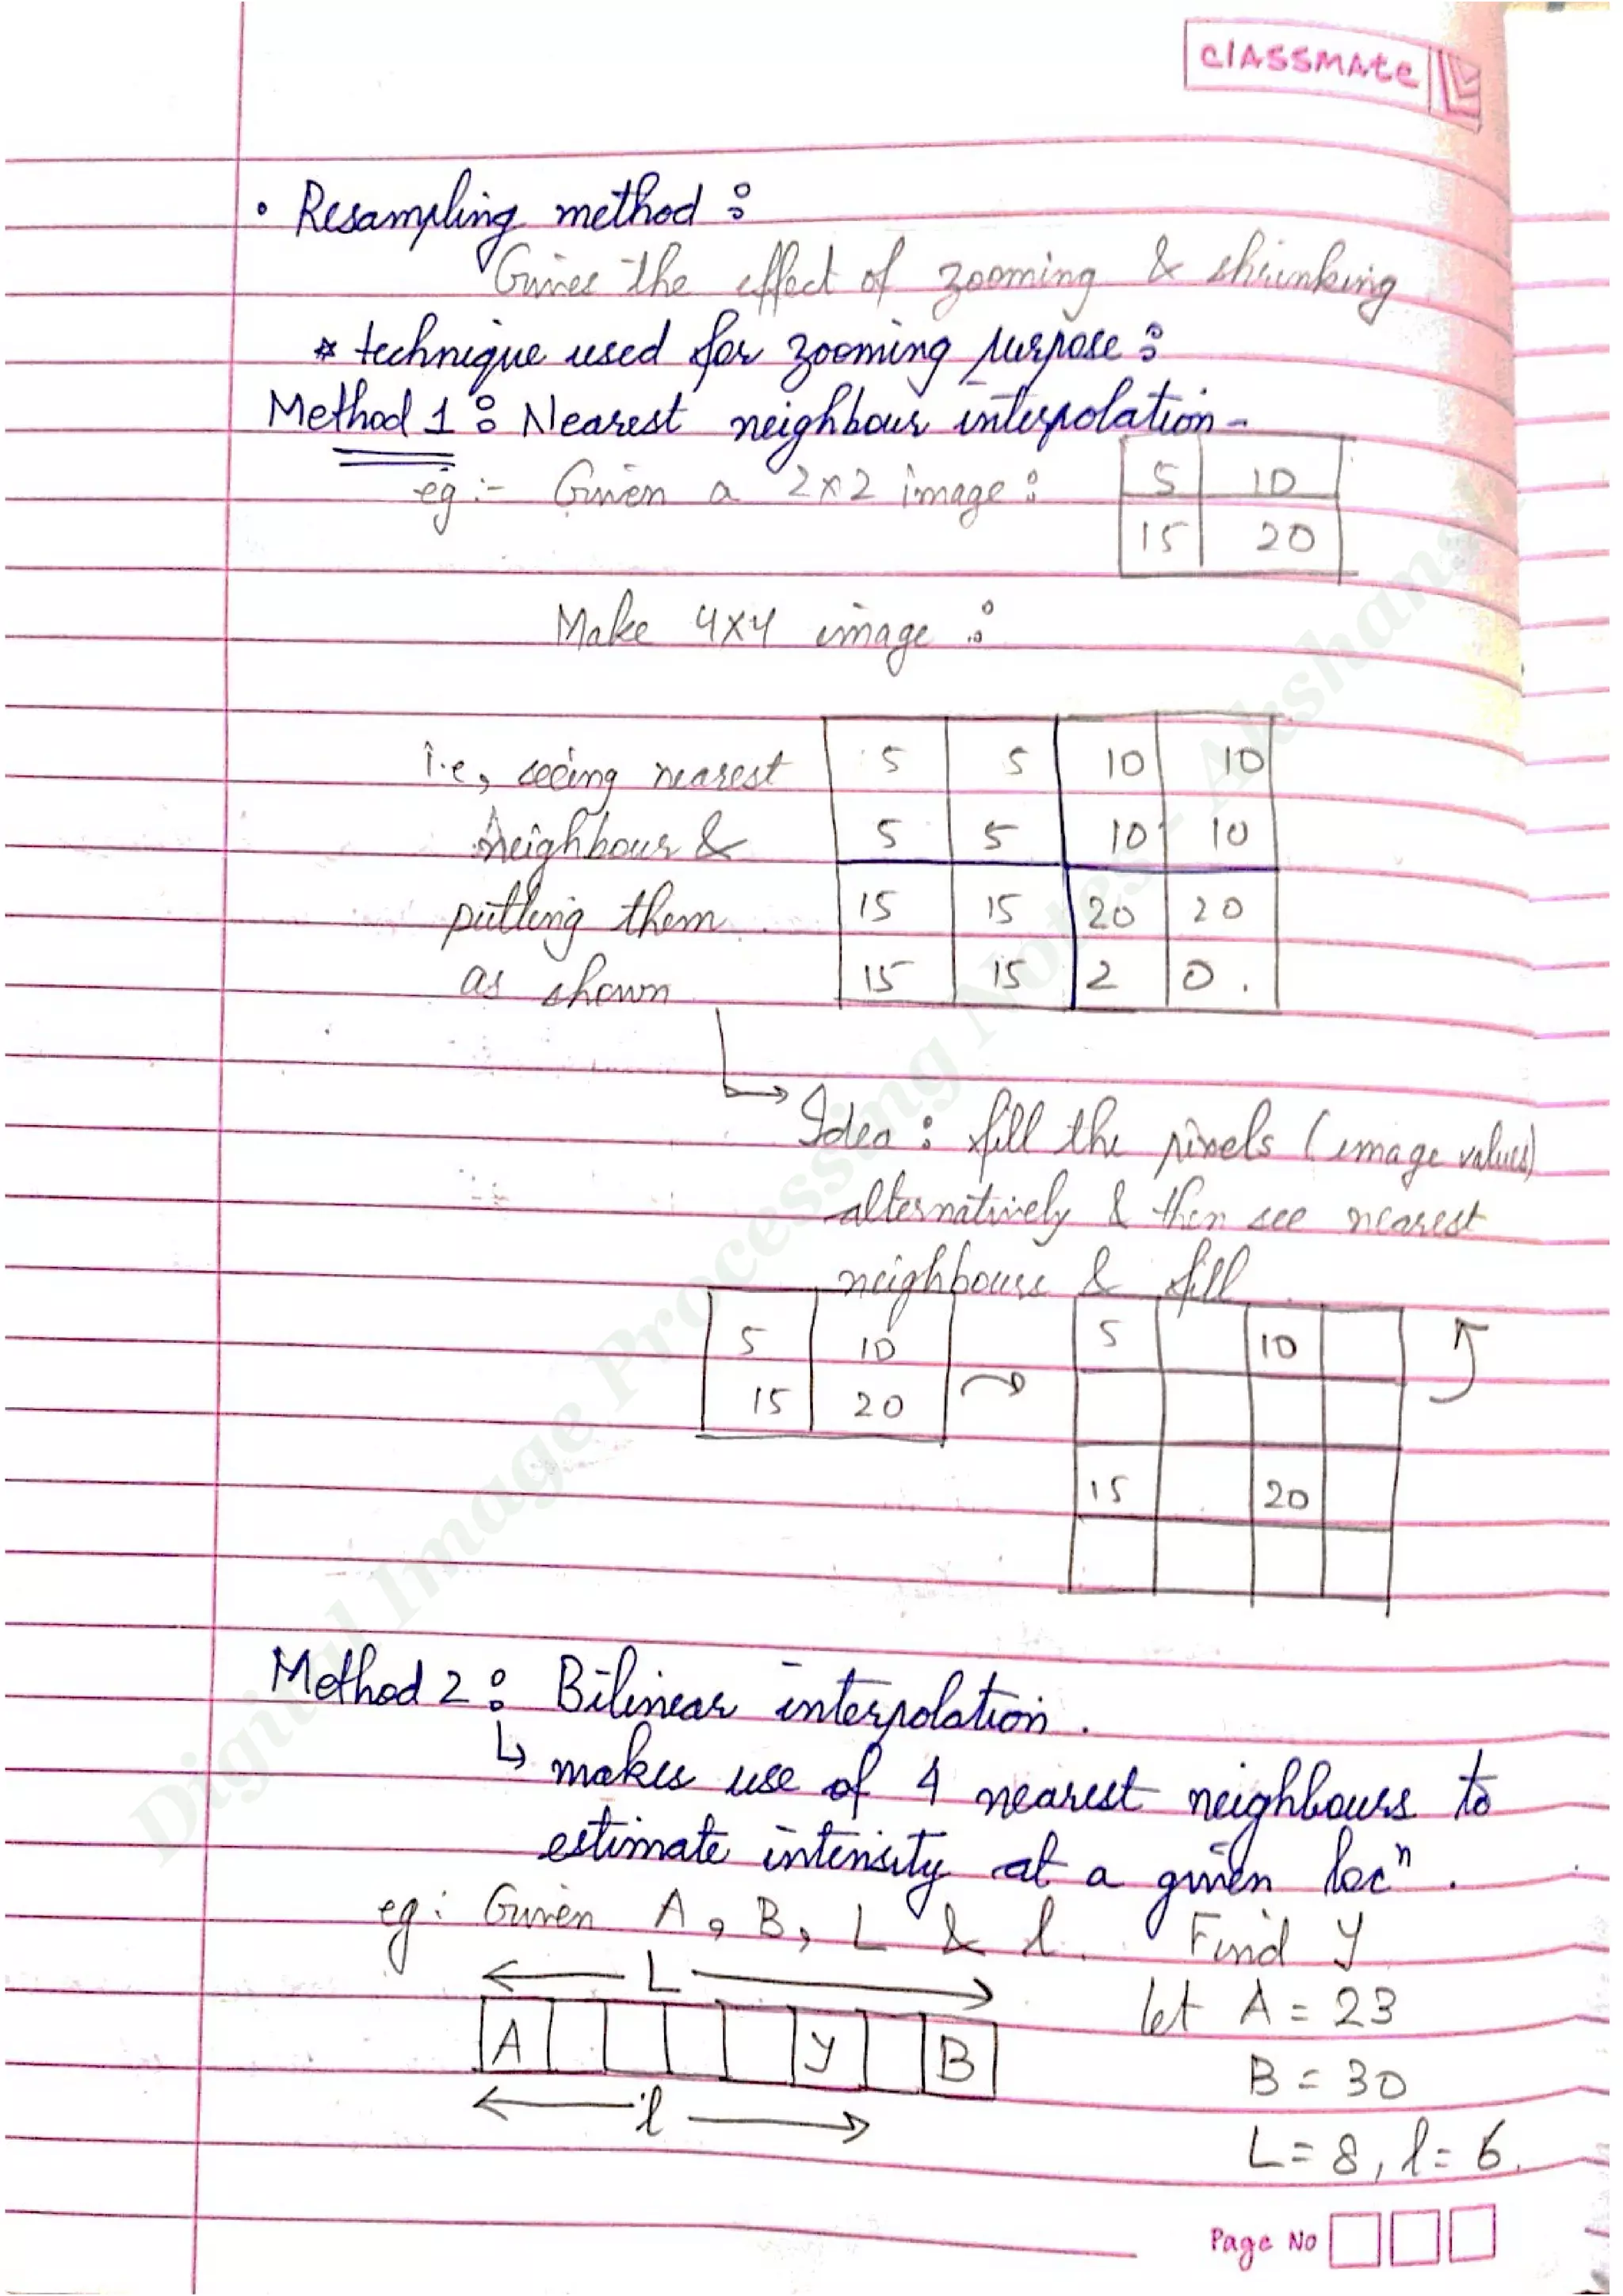 classmate
• Resampling method :
Gives the effect of zooming & shrinking
* technique used for zooming purpose :
Method 1 : Nearest neighbour interpolation -
eg :- Given a 2x2 image :
5 10
15 20
Make 4x4 image :
i.e, seeing nearest
neighbour &
putting them
as shown
5 5 10 10
5 5 10 10
15 15 20 20
15 15 2 0 .
Idea : fill the pixels (image values)
alternatively & then see nearest
neighbours & fill
5 10
15 20
5 10
15 20
Method 2 : Bilinear interpolation .
↳ makes use of 4 nearest neighbours to
estimate intensity at a given locⁿ .
eg : Given A, B, L & l. Find y
L
A y B
l
let A = 23
B = 30
L = 8, l = 6.
Page No
Digital Image Processing Notes - Akshansh